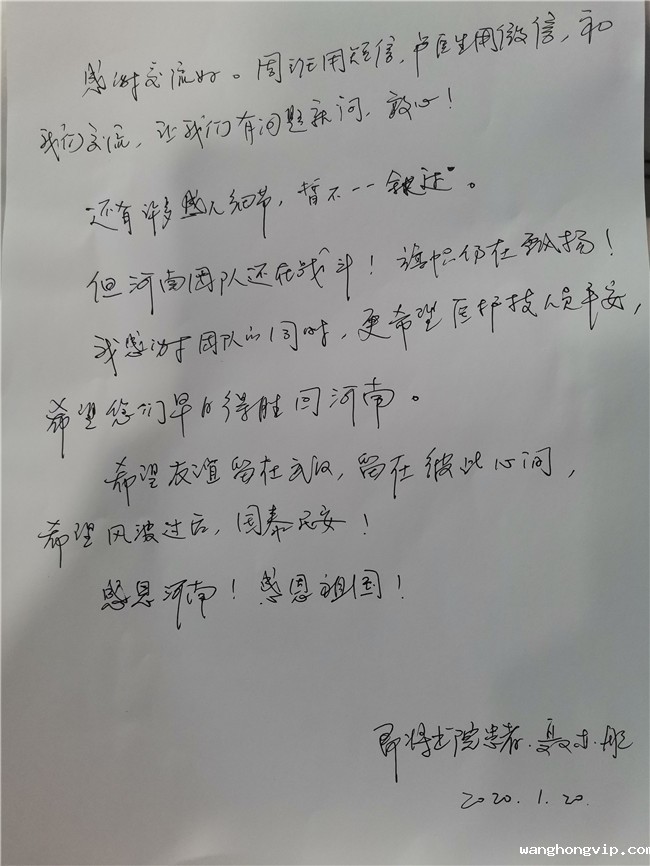 感谢交流好。周班用短信,卢医生用微信,和
我们交流,让我们有问题就问,放心!
还有许多感人细节,暂不一一叙述。
但河南团队还在战斗!旗帜仍在飘扬!
我感谢团队的同时,更希望医护技人员平安,
希望您们早日得胜回河南。
希望友谊留在武汉,留在彼此心间,
希望风波过后,国泰民安!
感恩河南!感恩祖国!
即将出院患者.聂
2020.1.20.
wanghongvip.com